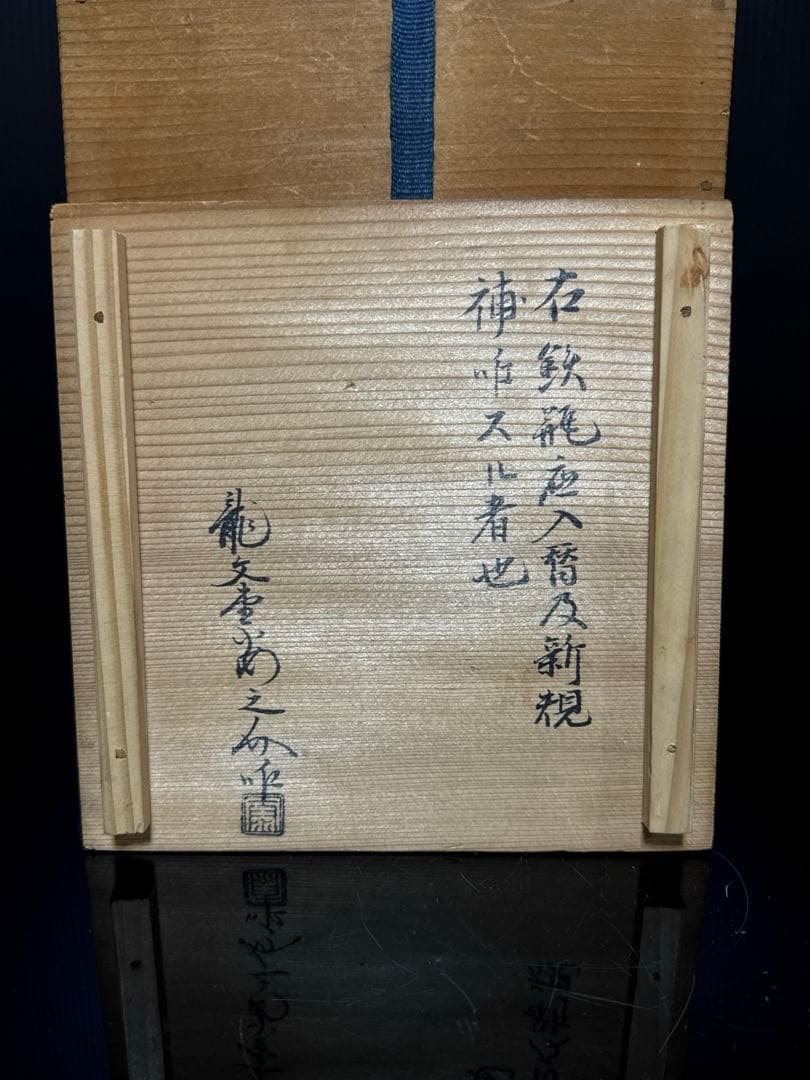 右鉄瓶底入替及新規
補唯スル者也
龍文堂安之介